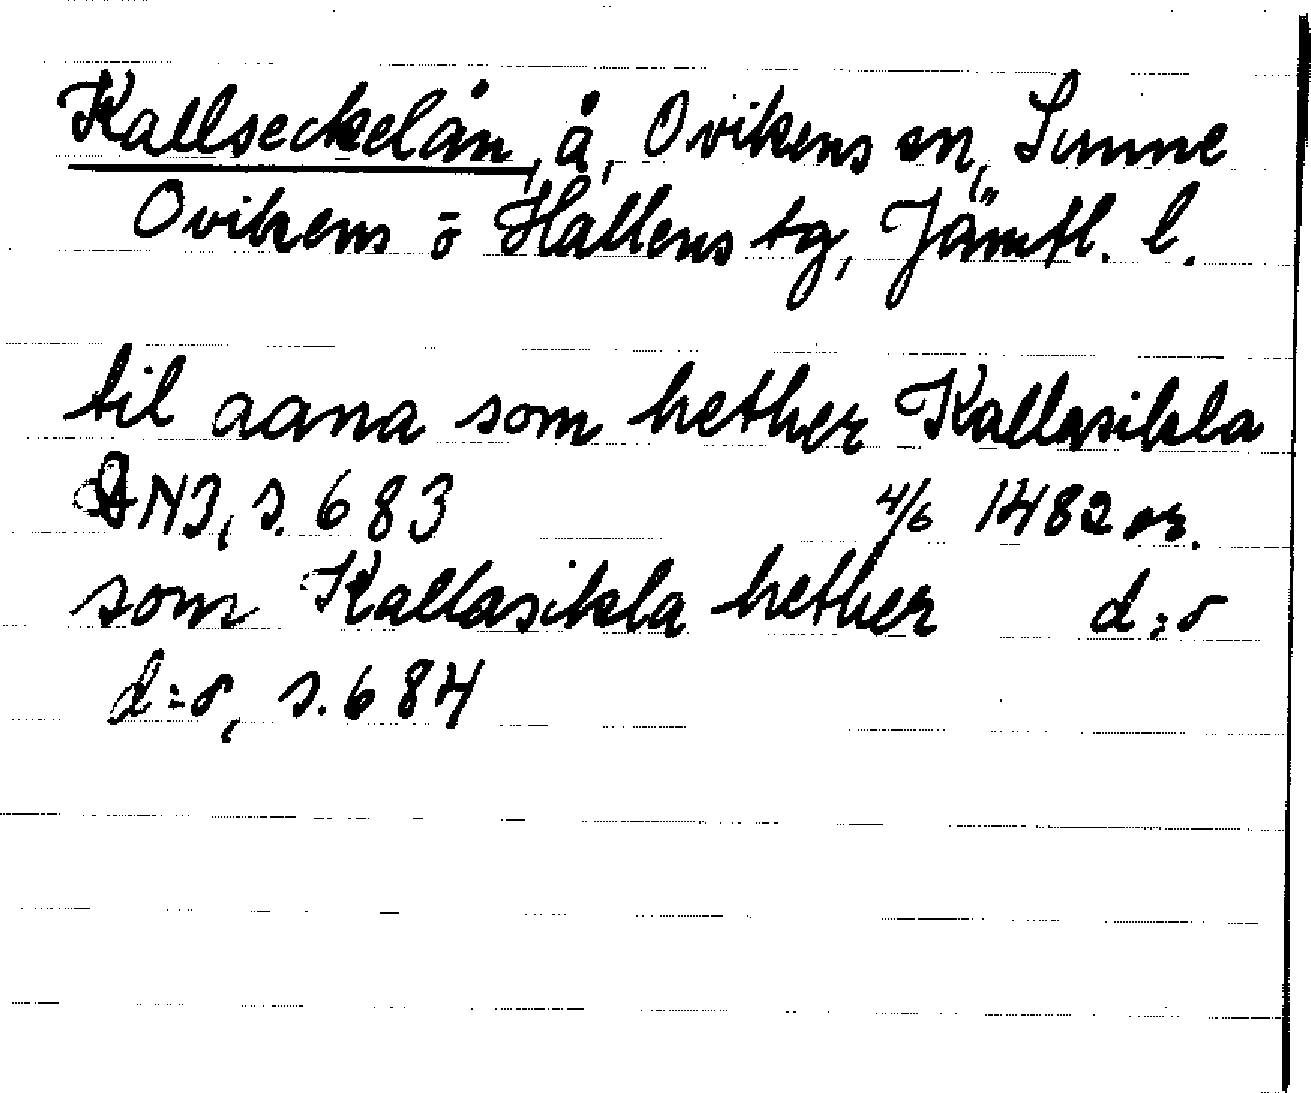 Kallseckelån, å, Ovikens sn, Sunne
Ovikens o Hallens tg, Jämtl. l.
til aana som hether Kallasikla
DN3, s. 683 4/6 1482 or.
som Kallasikla hether d:o
d:o, s. 684